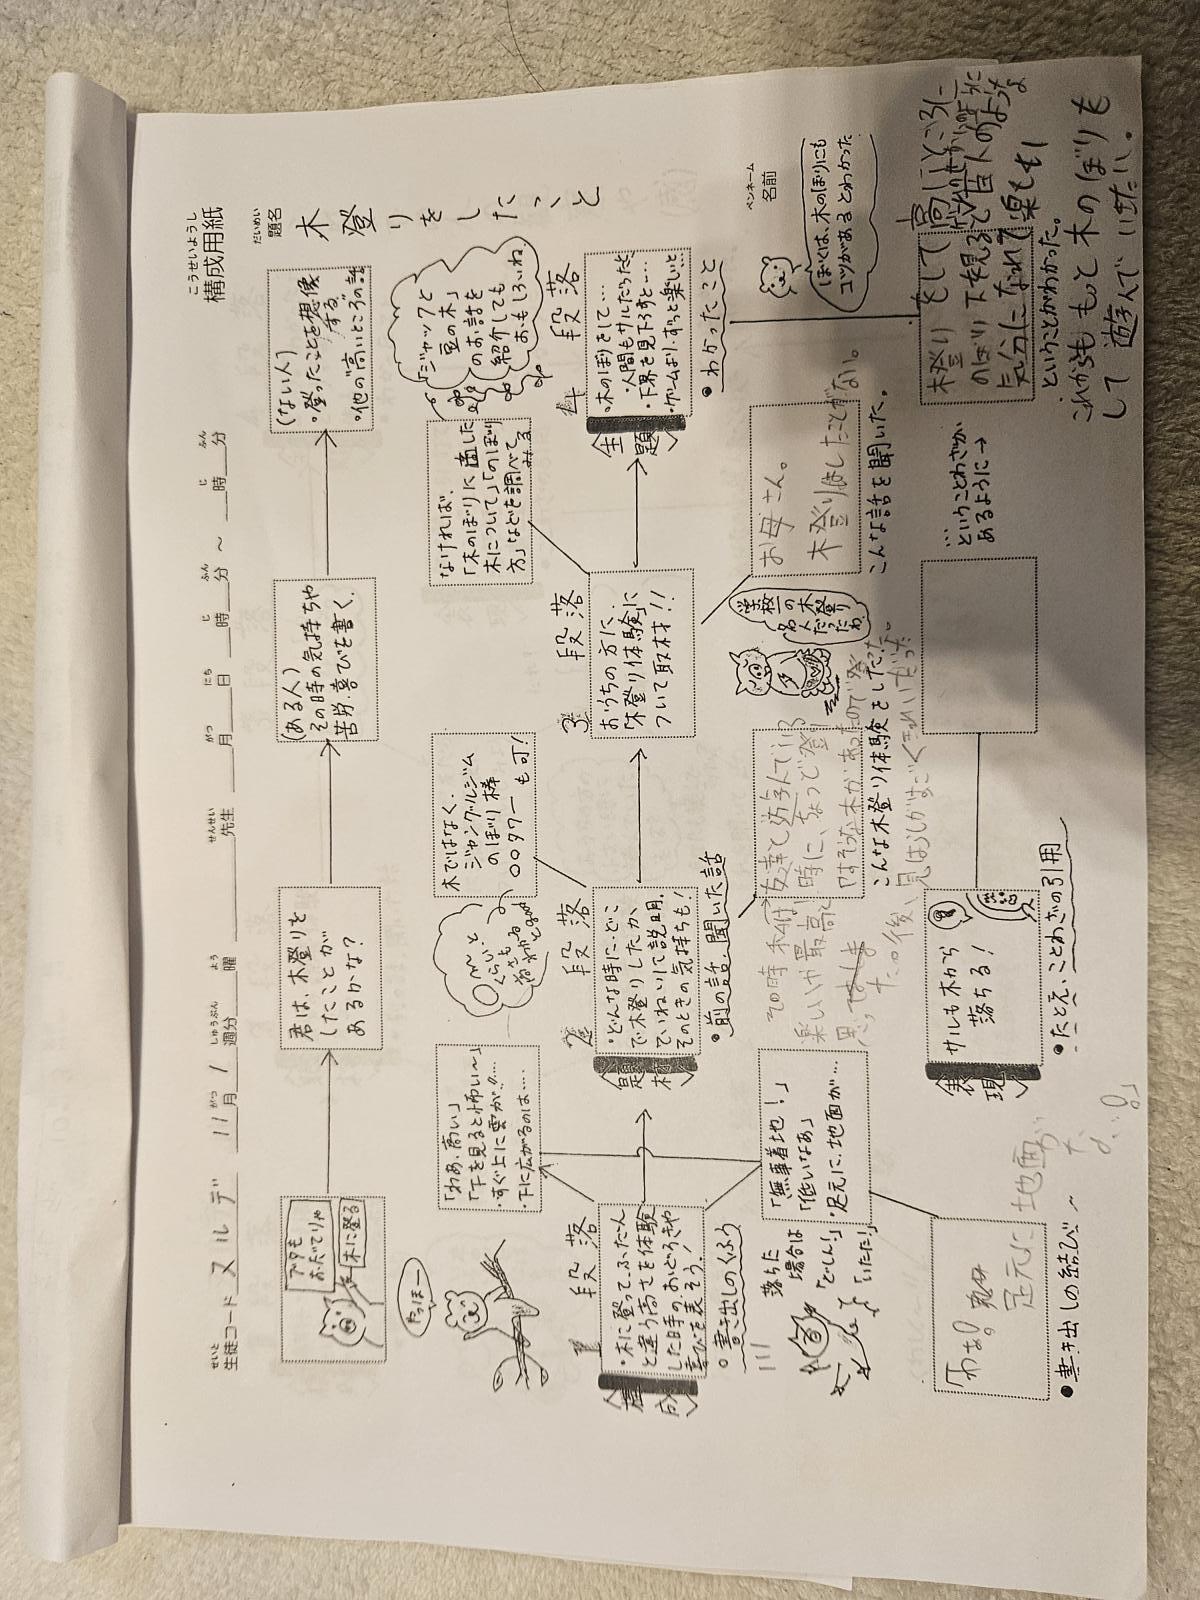 こうせいようし
構成用紙
だいめい
題名
木登りをしたこと
ペンネーム
名前
せいと
生徒コード ヌルデ 11月1週分 曜日 月 日 時 分～ 時 分
がつ
しゅうぶん
よう
せんせい
先生
がつ
にち
じ
ふん
じ
ふん
ブタも
おだてりゃ
木に登る
君は、木登りを
したことが
あるかな?
(ある人)
その時の気持ちや
苦労喜びを書く。
(ない人)
・登ったことを想像
する
・他の高いところの話
やっほー
「わあ、高い」
「下を見ると怖い〜」
・すぐ上に雲が!!....
・下に広がるのは....
○mくらい。と
木ではなく、
ジャングルジム
のぼり棒
○○タワーも可!
なければ、
「木のぼりに適した
木について」「のぼり
方」などを調べて
みる
「ジャックと
豆の木」
のお話を
紹介しても
おもしろいね。
1 段落
構成
・木に登って、ふだん
と違う高さを体験
した時の、おどろきや
喜びを表そう!
○書き出しのくふう
2 段落
題材
・どんな時に・どこ
で木登りしたか、
ていねいに説明。
そのときの気持ちも!
・前の話、聞いた話
3 段落
おうちの方に、
「木登り体験」に
ついて取材!!
4 段落
主題
・木のぼりをして...
・人間もサルだった
・下界を見下ろすと...
・ゲームより、ずっと楽しいと
・わかったこと
ぼくは、木のぼりにも
コツがあるとわかった
落ちた
場合は
「どしん!」
「いたた!」
「無事着地!」
「低いなあ」
・足元に、地面が...
友達と遊んでいる
時に、ちょうど登り
やすそうな木があったので登った。
その時
楽しいや最高と
思って
た。その後、
こんな木登り体験をした。
学校一の木登り
名人だったわ
お母さん。
木登りはしたことがない。
こんな話を聞いた。
「わあ。
足元に地面が
・書き出しの結び〜
表現
サルも木から
落ちる!
・たとえ、ことわざの引用
...ということわざが
あるように→
木登りをして高いところに
のぼり下を見ると
気分になれて楽しい
ということがわかった。
これからももっと木のぼりも
して遊んでいきたい。